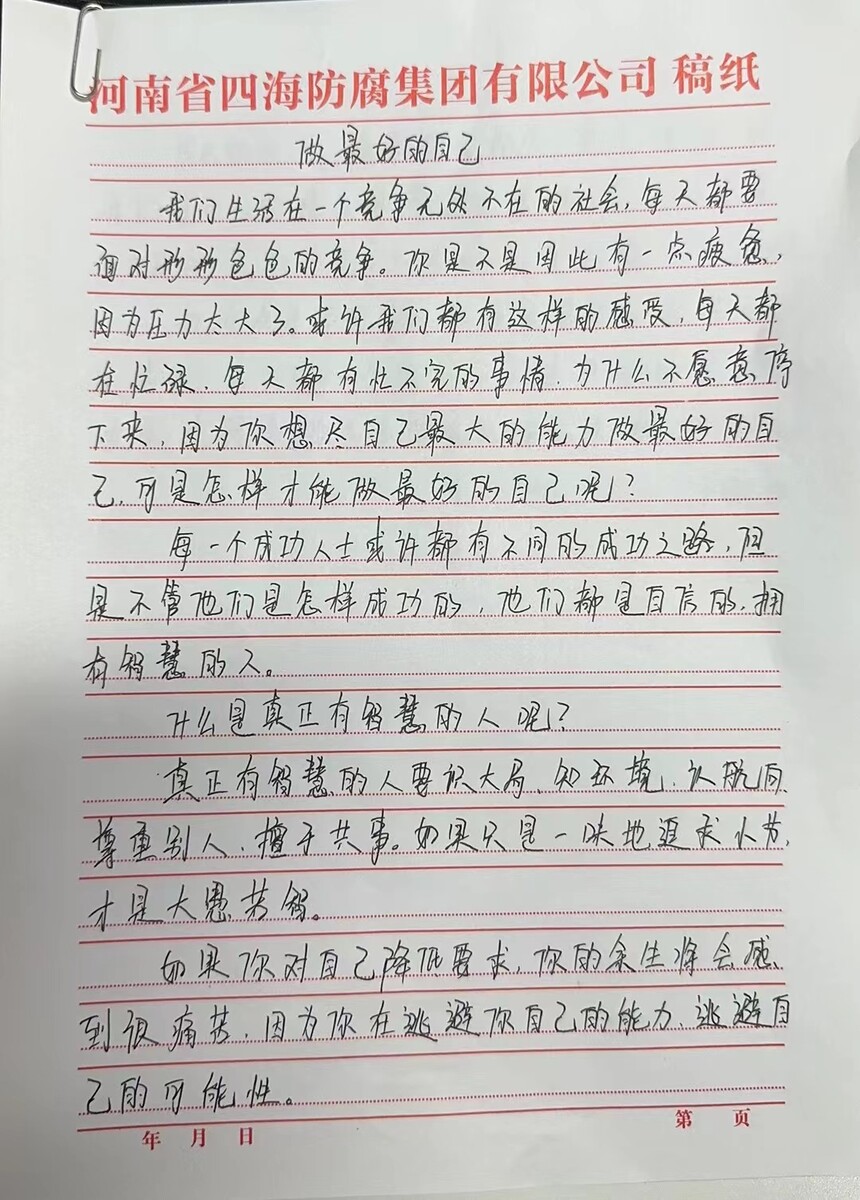 河南省四海防腐集团有限公司 稿纸
做最好的自己
我们生活在一个竞争无处不在的社会,每天都要
面对形形色色的竞争。你是不是因此有一点疲惫,
因为压力太大了。或许我们都有这样的感受,每天都
在忙碌,每天都有忙不完的事情,为什么不愿意停
下来,因为你想尽自己最大的能力做最好的自
己,可是怎样才能做最好的自己呢?
每一个成功人士或许都有不同的成功之路,但
是不管他们是怎样成功的,他们都是自信的,拥
有智慧的人。
什么是真正有智慧的人呢?
真正有智慧的人要识大局、知环境、认航向、
尊重别人、擅于共事。如果只是一味地追求小节,
才是大愚若智。
如果你对自己降低要求,你的余生将会感
到很痛苦,因为你在逃避你自己的能力、逃避自
己的可能性。
年 月 日
第 页